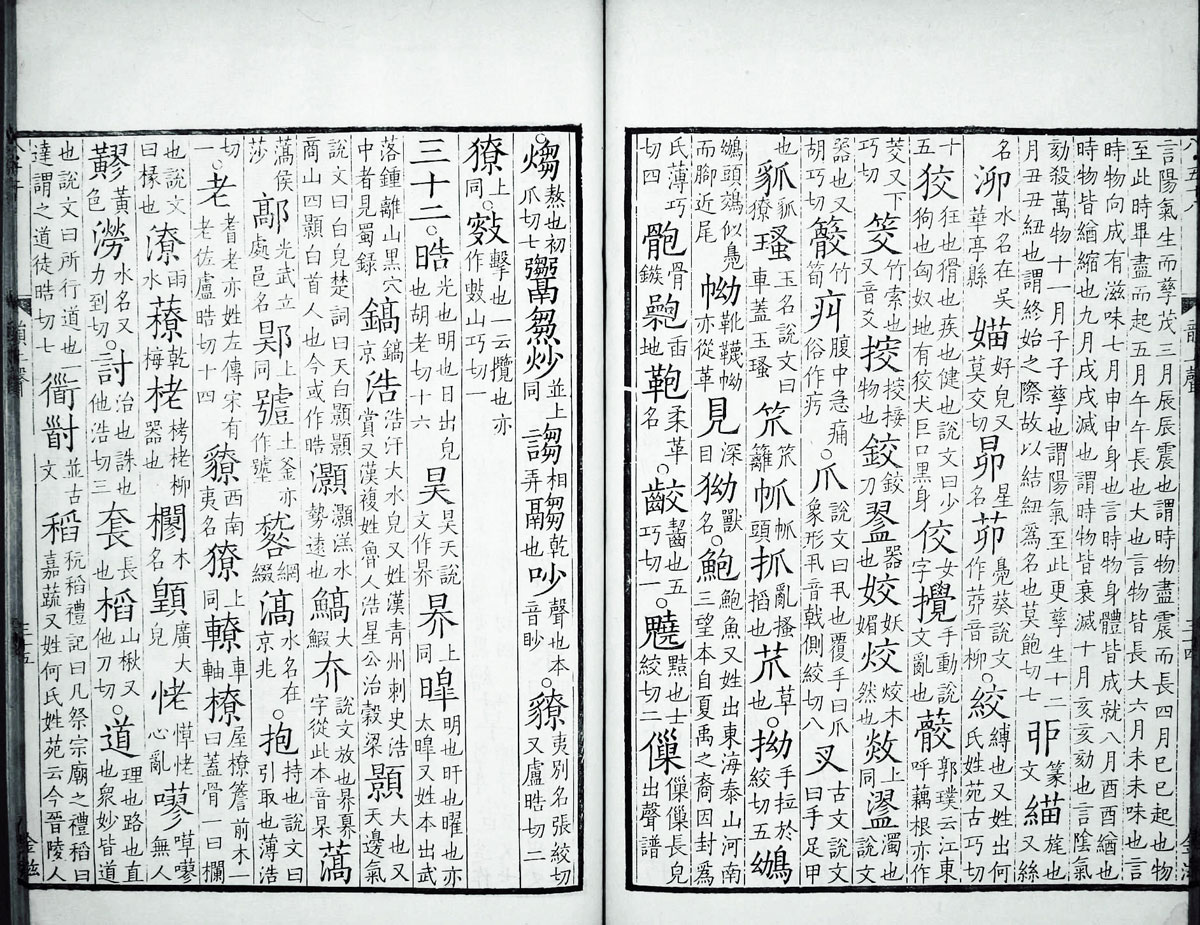 言陽氣生而孳茂三月辰辰震也謂時物盡震而長四月巳巳起也物
至此時畢盡而起五月午午長也大也言物皆長大六月未未味也言
時物向成有滋味七月申申身也言時物身體皆成就八月酉酉緧也
時物皆緧縮也九月戌戌滅也謂時物皆衰滅十月亥亥劾也言陰氣
劾殺萬物十一月子子孳也謂陽氣至此更孳生十二月丑丑紐也謂終始之際故以結紐爲名也莫飽切七戼篆文緢旄也又絲
名泖水名在吳華亭縣媌好皃又莫交切昴星名茆鳧葵說文作茆音柳○絞縛也又姓出何氏姓苑古巧切
十五狡狂也猾也疾也健也說文曰少狗也匈奴地有狡犬巨口黑身佼女字攪手動說文亂也郭璞云江東呼藕根亦作
茭又下巧切筊竹索也又音爻挍挍接物也鉸鉸刀器也姣妖媚烄木然也上同灚濁也說文
器也又胡巧切竹筍疞腹中急痛俗作疞○爪說文曰丮也覆手曰爪象形丮音戟側絞切八叉古文說文曰手足甲
也獠瑵玉名說文曰車蓋玉瑵笊笊籬頭抓亂搔搯也草也○拗手拉於絞切五鴢
鴢頭鵁似鳧而腳近尾靴韈亦從革深目獸名○鮑鮑魚又姓出東海泰山河南三望本自夏禹之裔因封爲
氏薄巧切四骲骨鏃地名鞄柔革○齩齧也五巧切一○黠也士絞切二長皃出聲譜
○煼熬也初爪切七炒並上同謅相謅乾弄也吵聲也本音眇○獠夷別名張絞切又盧晧切二
獠上同擊也一云攪也亦作山巧切一
三十二○晧光也明也日出皃也胡老切十六昊昊天說文作昦昦上同暤明也旰也曜也亦太暤又姓本出武
落鍾離山黑穴中者見蜀錄鎬鎬京浩浩汗大水皃又姓漢青州刺史浩賞又漢複姓魯人浩星公治穀梁顥大也又天邊氣
說文曰白皃楚詞曰天白顥顥商山四顥白首人也今或作晧灝灝溔水勢遠也鰝大鰕夰說文放也昦字從此本音杲薃
薃侯莎鄗光武立處邑名上同土釜亦作網綴滈水名在京兆○抱持也說文曰引取也薄浩
切一○老耆老亦姓左傳宋有老佐盧晧切十四西南夷名獠上同轑車軸橑屋橑簷前木一曰蓋骨一曰欄
也說文曰椽也潦雨水䕩乾梅栳栲栳柳器也木名廣大皃恅愺恅心亂嘐嘐無人
黃色澇水名又力到切○討治也誅也他浩切三套長也山楸又他刀切○道理也路也直也衆妙皆道
也說文曰所行道也一達謂之道徒晧切七並古文稻稻禮記曰凡祭宗廟之禮稻曰嘉蔬又姓何氏姓苑云今晉陵人